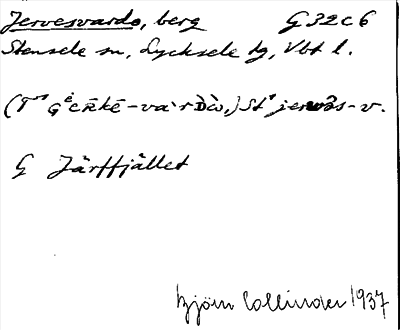 Jervesvardo, berg G 32 c 6
Stensele sn, Lycksele tg, Vbt l.
St jervas-v.
G Järffjället
Björn Collinder 1937